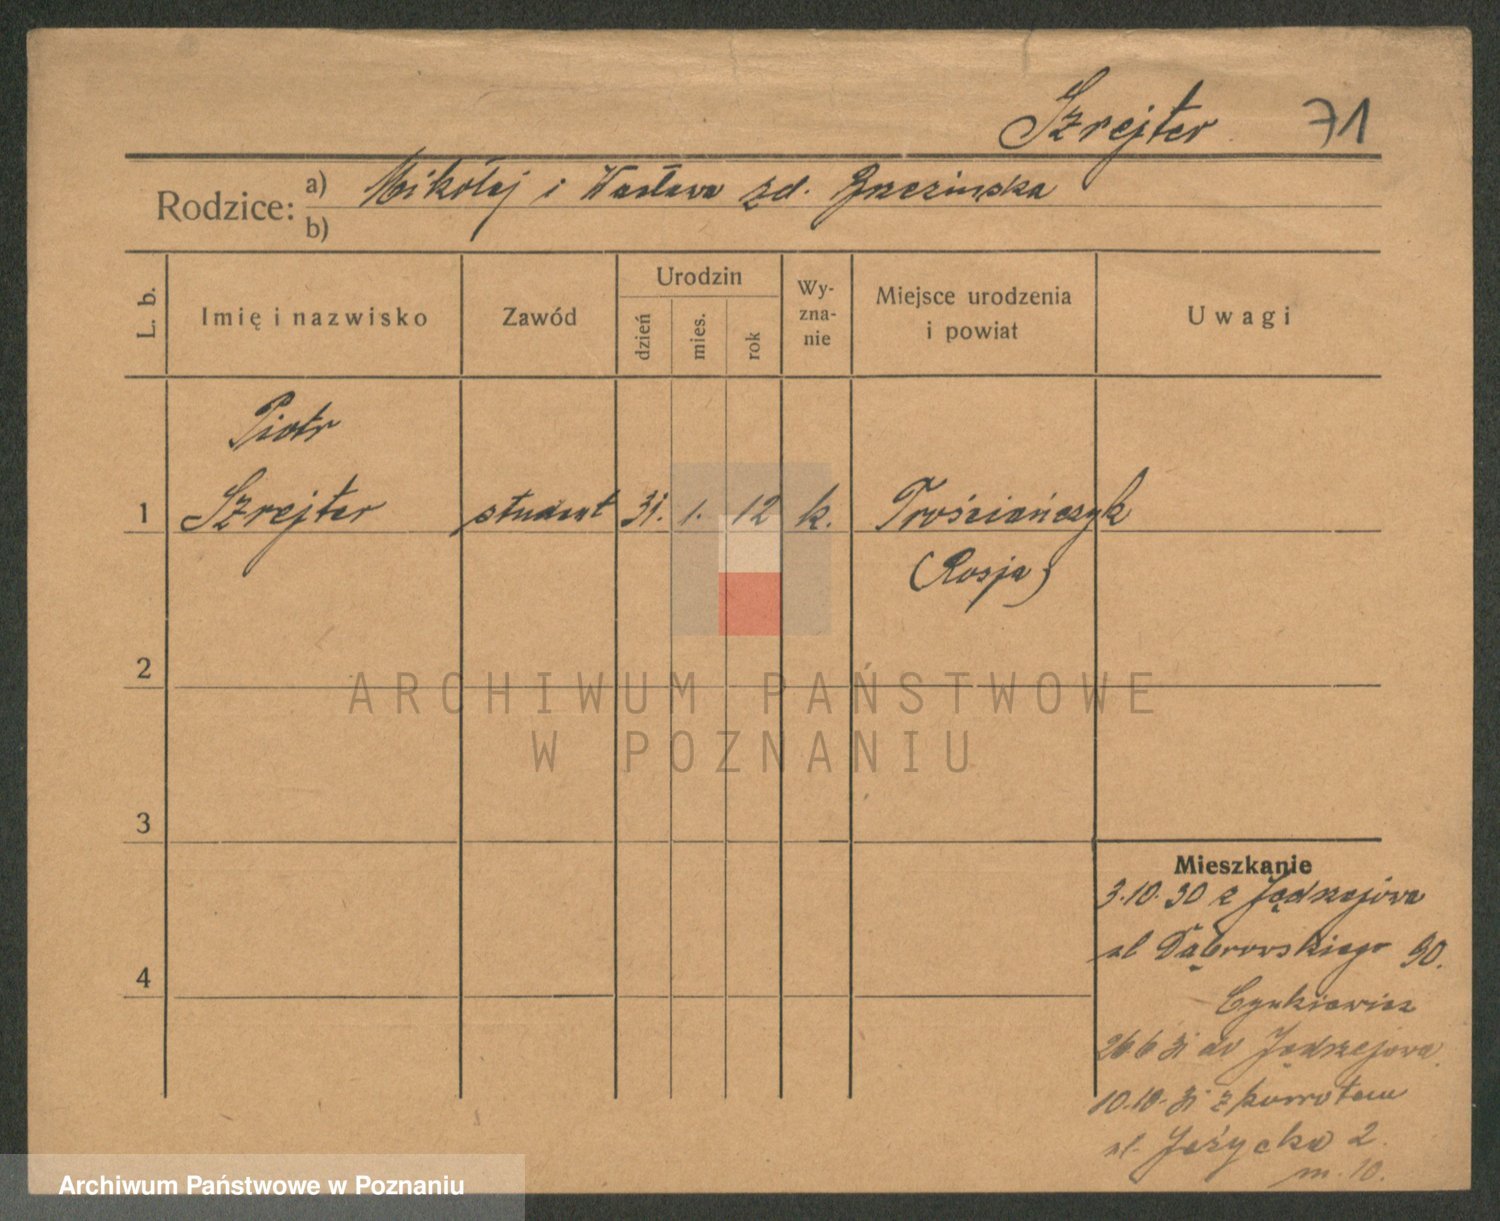 Szrejter 71
Rodzice: a) Mikołaj i Wacława zd. Brzezińska
b)
L. b.
Imię i nazwisko
Zawód
Urodzin
dzień
mies.
rok
Wy-
zna-
nie
Miejsce urodzenia
i powiat
Uwagi
Piotr
1 Szrejter student 31. 1. 12 k. Trościańczyk
(Rosja)
2
ARCHIWUM PAŃSTWOWE
W POZNANIU
3
4
Mieszkanie
3.10.30 z Jędrzejowa
ul Dąbrowskiego 90.
26 6 31 do Jędrzejowa
10.10.31 z powrotem
ul. Jeżycka 2.
m. 10.
Archiwum Państwowe w Poznaniu